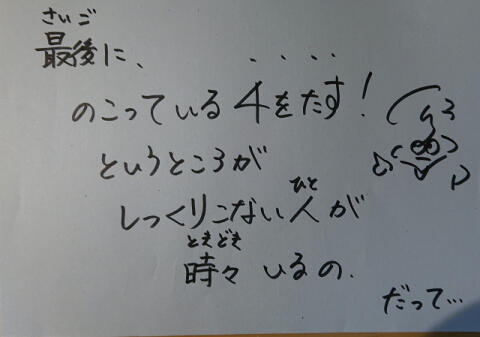 さいご
最後に、
のこっている4をたす!
というところが
しっくりこない人が
ひと
ときどき
時々 いるの.
だって…